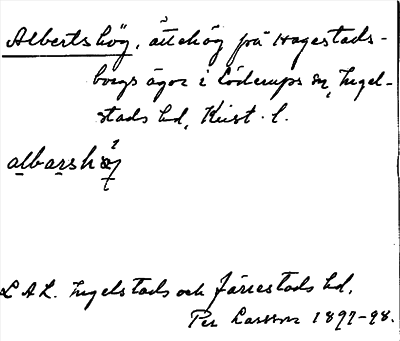 Albertshög, ättehög på Hagestads-
borgs ägor i Löderups sn, Ingel-
stads hd, Krist. l.
albarshöj
L A L. Ingelstads och Järrestads hd,
Per Larsson 1897-98.